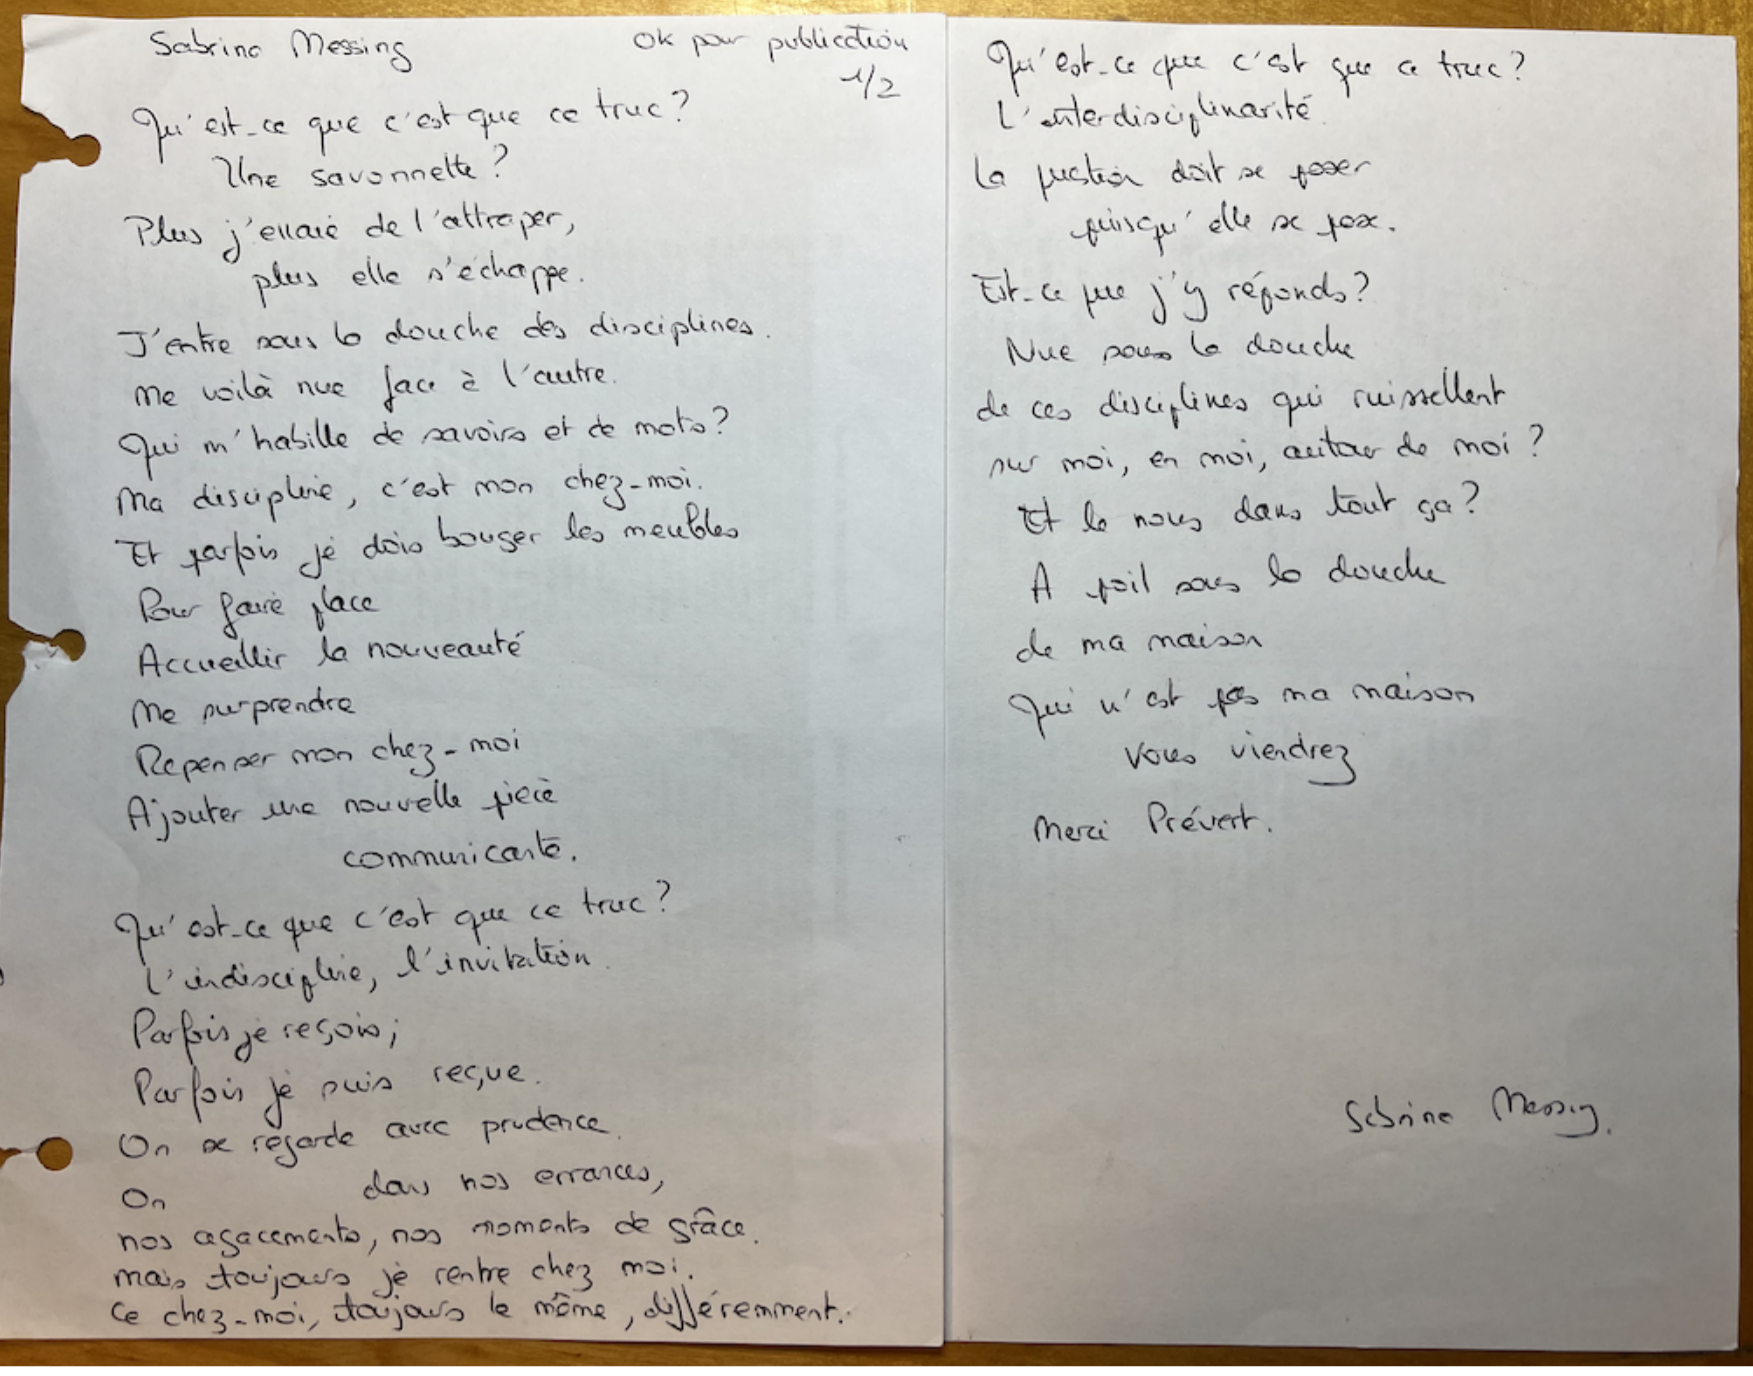 Sabrina Messing
OK pour publication
1/2
Qu'est-ce que c'est que ce truc?
Une savonnette?
Plus j'essaie de l'attraper,
plus elle s'échappe.
J'entre sous la douche des disciplines.
Me voilà nue face à l'autre.
Qui m'habille de savoirs et de mots?
Ma discipline, c'est mon chez-moi.
Et parfois je dois bouger les meubles
Pour faire place
Accueillir la nouveauté
Me surprendre
Repenser mon chez-moi
Ajouter une nouvelle pièce
communicante.
Qu'est-ce que c'est que ce truc?
L'indiscipline, l'invitation.
Parfois je reçois;
Parfois je suis reçue.
On se regarde avec prudence.
On dans nos errances,
nos agacements, nos moments de grâce.
mais toujours je rentre chez moi.
Ce chez-moi, toujours le même, différemment.
Qu'est-ce que c'est que ce truc?
L'interdisciplinarité.
La question doit se poser
puisqu'elle se pose.
Est-ce que j'y réponds?
Nue sous la douche
de ces disciplines qui ruissellent
sur moi, en moi, autour de moi?
Et le nous dans tout ça?
A poil sous la douche
de ma maison
Qui n'est pas ma maison
Vous viendrez
Merci Prévert.
Sabrina Messing.